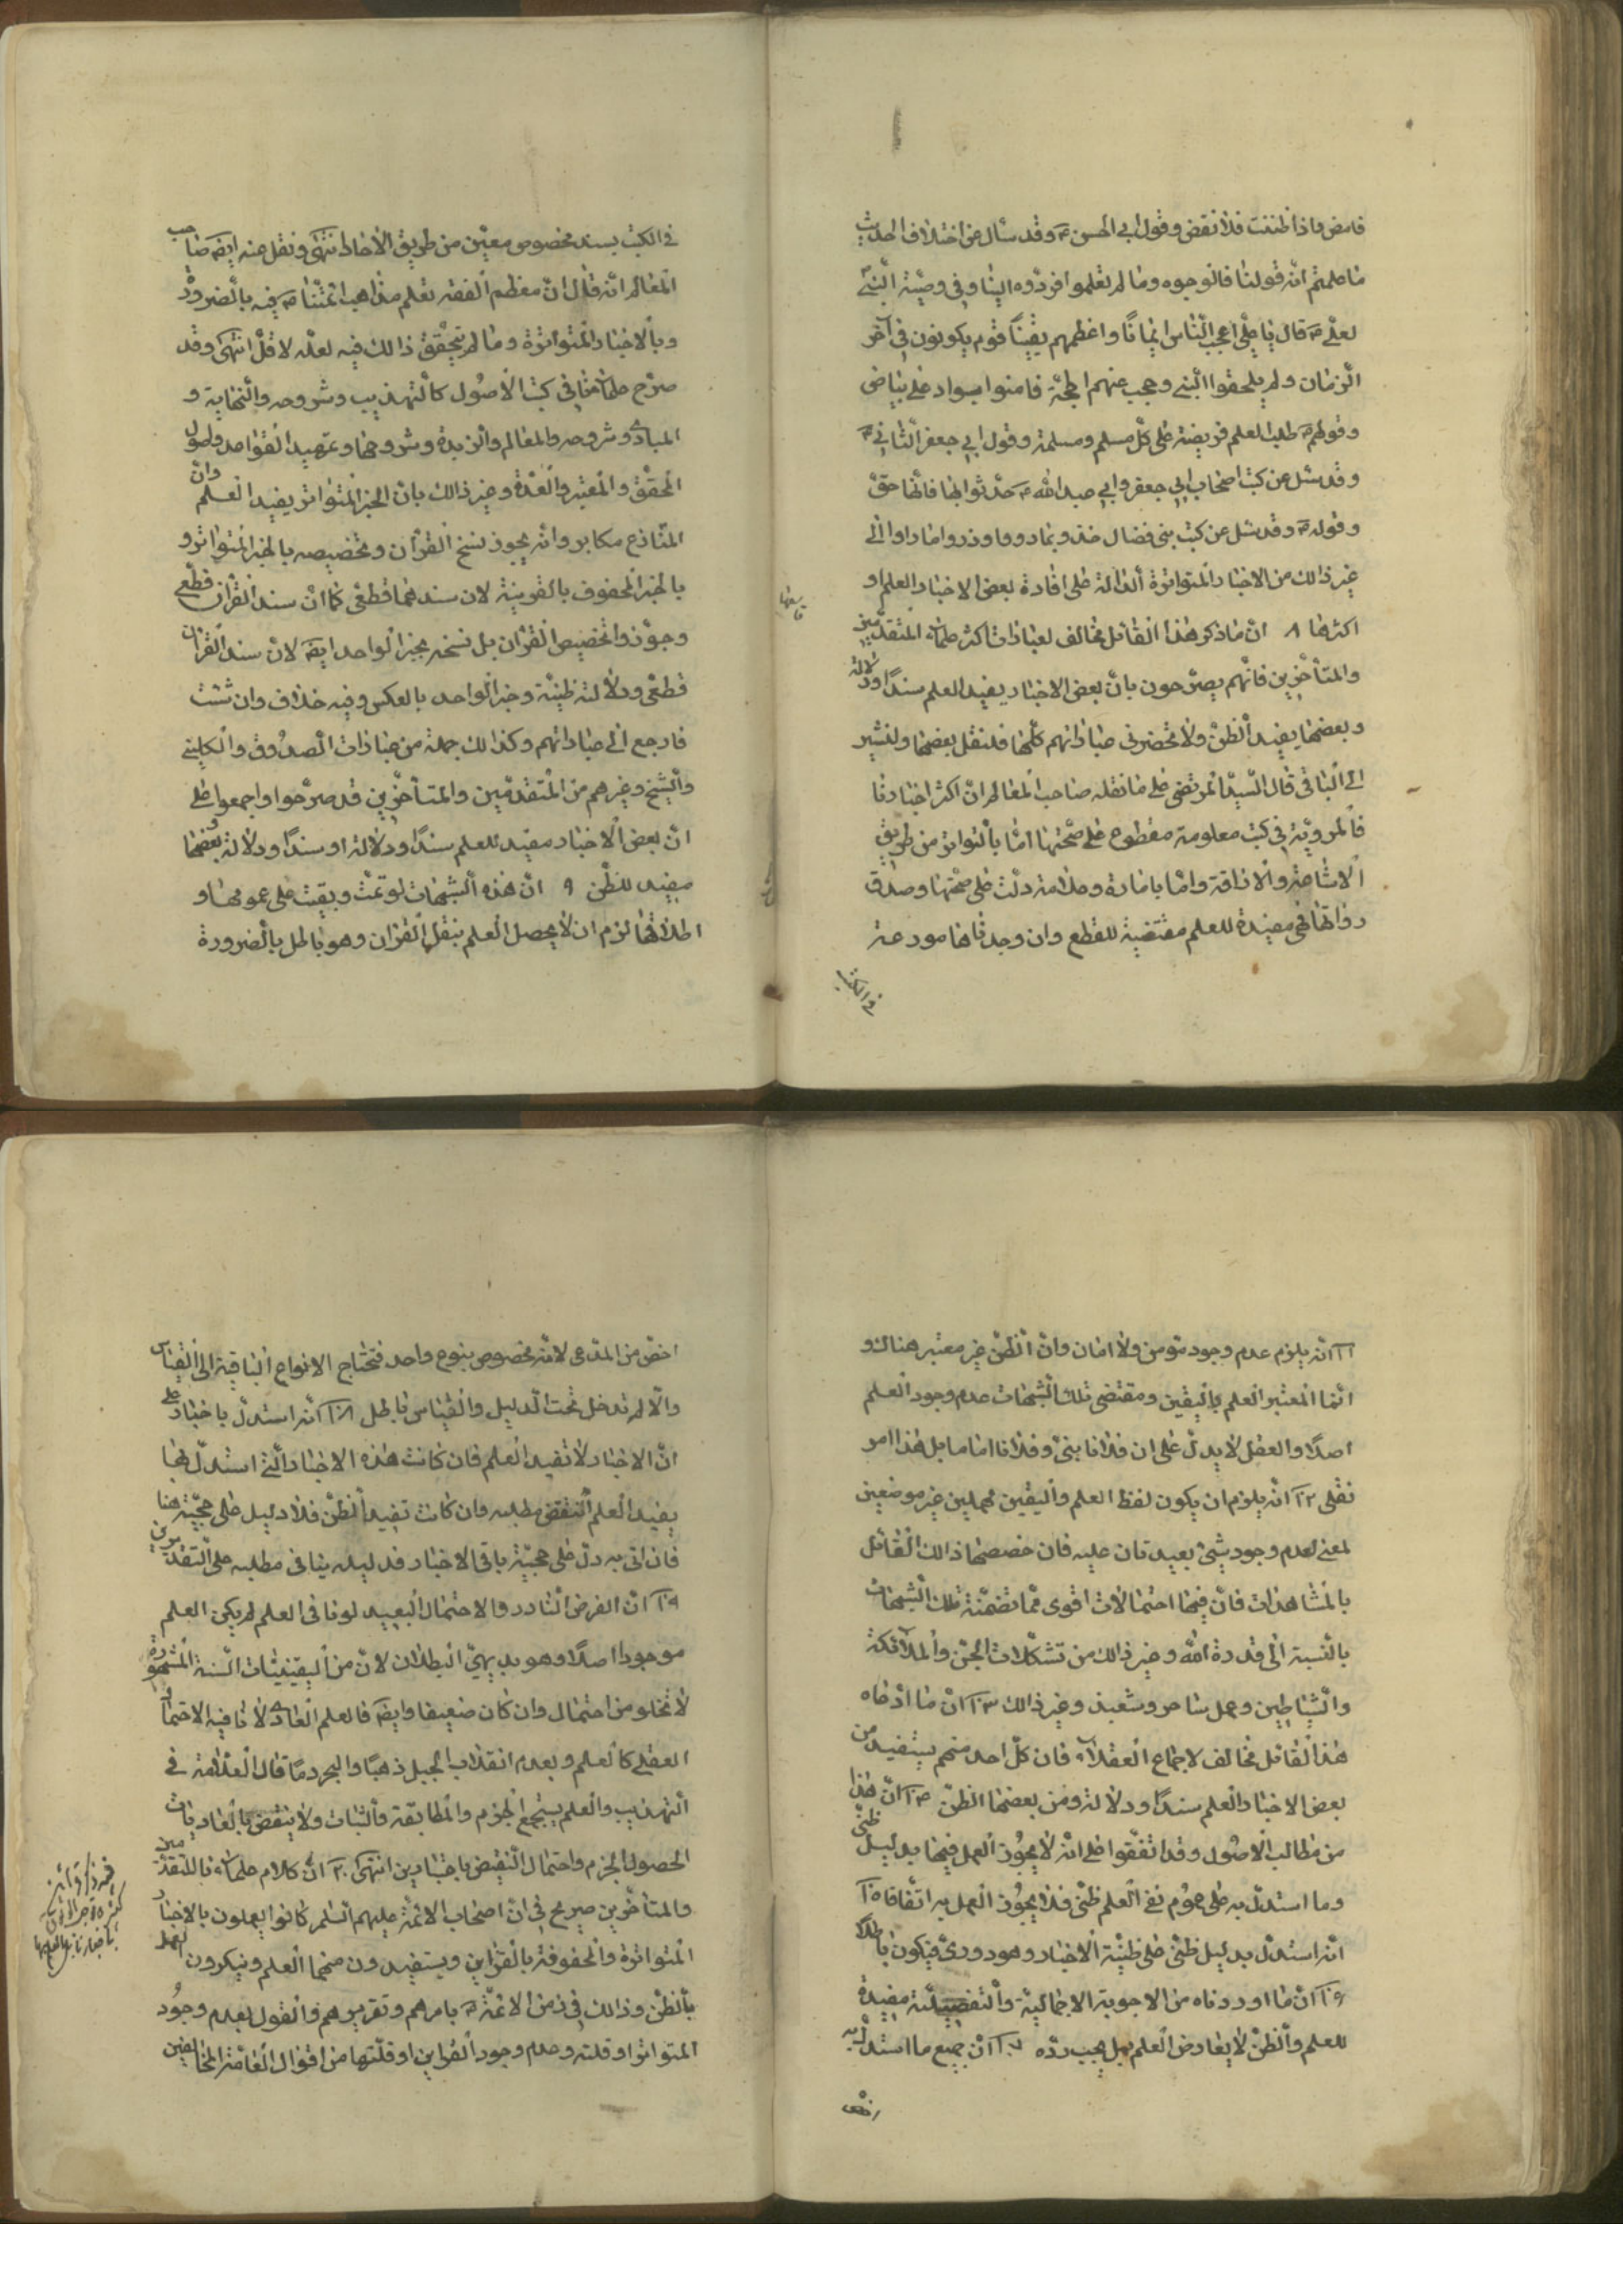 فامض واذا ظننت فلا تقض وقول ابي الحسن ع وقد سئل عن اختلاف الحديث
ما علمتم انه قولنا فالزموه وما لم تعلموا فردوه الينا وفي وصية النبي
لعلي ع قال يا علي اعجب الناس ايمانا واعظمهم يقينا قوم يكونون في آخر
الزمان ولم يلحقوا النبي وحجب عنهم الحجة فامنوا بسواد على بياض
وقولهم ع طلب العلم فريضة على كل مسلم ومسلمة وقول ابي جعفر الثاني ع
وقد سئل عن كتب اصحاب ابي جعفر وابي عبد الله ع حدثوا بها فانها حق
وقوله ع وقد سئل عن كتب بني فضال خذوا بما رووا وذروا ما راوا الى
غير ذلك من الاخبار المتواترة الدالة على افادة بعض الاخبار العلم او
اكثرها ٨ ان ما ذكر هذا القائل مخالف لعبارات اكثر علمائنا المتقدمين
والمتأخرين فانهم يصرحون بان بعض الاخبار يفيد العلم سندا ودلالة
وبعضها يفيد الظن ولا تحضرني عباراتهم كلها فلننقل بعضها ولنشير
الى الباقي قال السيد المرتضى على ما نقله صاحب المعالم ان اكثر اخبارنا
المروية في كتب معلومة مقطوع على صحتها اما بالتواتر من طريق
الاشاعة والاذاعة واما بامارة وعلامة دلت على صحتها وصدق
رواتها فهي مفيدة للعلم مقتضية للقطع وان وجدناها مودعة
في الكتب
في الكتب بسند مخصوص معين من طريق الاحاد انتهى ونقل عنه ايضا صاحب
المعالم انه قال ان معظم الفقه تعلم مذاهب ائمتنا ع فيه بالضرورة
وبالاخبار المتواترة وما لم يتحقق ذالك فيه لعله لاقل انتهى وقد
صرح علمائنا في كتب الاصول كالتهذيب وشروحه والنهاية و
المبادي وشروحه والمعالم والزبدة وشروحها وتمهيد القواعد واصول
المحقق والمعتبر والعدة وغير ذالك بان الخبر المتواتر يفيد العلم وان
المنازع مكابر وانه يجوز نسخ القرآن وتخصيصه بالخبر المتواتر و
بالخبر المحفوف بالقرينة لان سندهما قطعي كما ان سند القرآن قطعي
وجوزوا تخصيص القرآن بل نسخه بخبر الواحد ايضا لان سند القرآن
قطعي ودلالته ظنية وخبر الواحد بالعكس وفيه خلاف وان شئت
فارجع الى عباراتهم وكذالك جملة من عبارات الصدوق والكليني
والشيخ وغيرهم من المتقدمين والمتأخرين قد صرحوا واجمعوا على
ان بعض الاخبار مفيد للعلم سندا ودلالة او سندا ودلالة بعضها
مفيد للظن ٩ ان هذه الشبهات لو تمت وبقيت على عمومها و
اطلاقها لزم ان لا يحصل العلم بنقل القرآن وهو باطل بالضرورة
١١ انه يلزم عدم وجود مؤمن ولا امان وان الظن غير معتبر هناك و
انما المعتبر العلم واليقين ومقتضى تلك الشبهات عدم وجود العلم
اصلا والعقل لا يدل على ان فلانا نبي وفلانا امام بل هذا امر
نقلي ١٢ انه يلزم ان يكون لفظ العلم واليقين مهملين غير موضوعين
لمعنى لعدم وجود شيء يصدقان عليه فان خصصها ذالك القائل
بالمشاهدات فان فيها احتمالات اقوى مما تضمنته تلك الشبهات
بالنسبة الى قدرة الله وغير ذالك من تشكلات الجن والملائكة
والشياطين وعمل ساحر ومشعبذ وغير ذالك ١٣ ان ما ادعاه
هذا القائل مخالف لاجماع العقلاء فان كل احد منهم يستفيد من
بعض الاخبار العلم سندا ودلالة ومن بعضها الظن ١٤ ان هذا
من مطالب الاصول وقد اتفقوا على انه لا يجوز العمل فيها بدليل ظني
وما استدل به على عموم نفي العلم ظني فلا يجوز العمل به اتفاقا ١٥
انه استدل بدليل ظني على ظنية الاخبار وهو دوري فيكون باطلا
١٦ ان ما اوردناه من الاجوبة الاجمالية والتفصيلية مفيدة
للعلم والظن لا يعارض العلم بل يجب رده ١٧ ان جميع ما استدل به
اخص
اخص من المدعى لانه مخصوص بنوع واحد فتحتاج الانواع الباقية الى القياس
والا لم تدخل تحت الدليل والقياس باطل ١٨ انه استدل باخبار على
ان الاخبار لا تفيد العلم فان كانت هذه الاخبار التي استدل بها
يفيد العلم انتقض مطلبه وان كانت تفيد الظن فلا دليل على حجيته هنا
فان اتى به دل على حجية باقي الاخبار فدليله ينافي مطلبه على التقديرين
١٩ ان الفرض النادر والاحتمال البعيد لو نافى العلم لم يكن العلم
موجودا اصلا وهو بديهي البطلان لان من اليقينيات الستة المشهورة
لا تخلو من احتمال وان كان ضعيفا وايضا فالعلم العادي لا ينافيه الاحتمال
العقلي كالعلم وبعدم انقلاب الجبل ذهبا والبحر دما قال العلامة في
التهذيب والعلم يستجمع الجزم والمطابقة والثبات ولا ينتقض بالعاديات
الحصول الجزم واحتمال النقيض باعتبارين انتهى ٢٠ ان كلام علمائنا المتقدمين
والمتأخرين صريح في ان اصحاب الائمة عليهم السلم كانوا يعملون بالاخبار
المتواترة والمحفوفة بالقراين ويستفيدون منهما العلم وينكرون العمل
بالظن وذالك في زمن الائمة ع بامرهم وتقريرهم والقول بعدم وجود
المتواتر او قلته وعدم وجود القراين او قلتها من اقوال العامة المخالفين